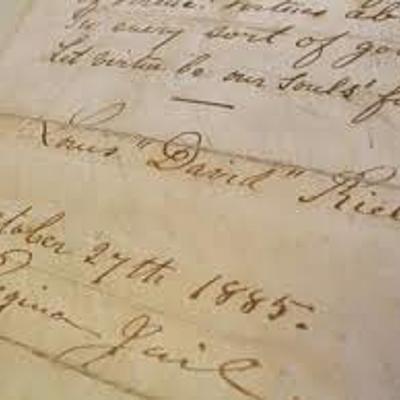 of virtue.
In every sort of go
Let virtue be our souls' fo
Louis "David" Riel
tober 27th 1885.
egina Jail